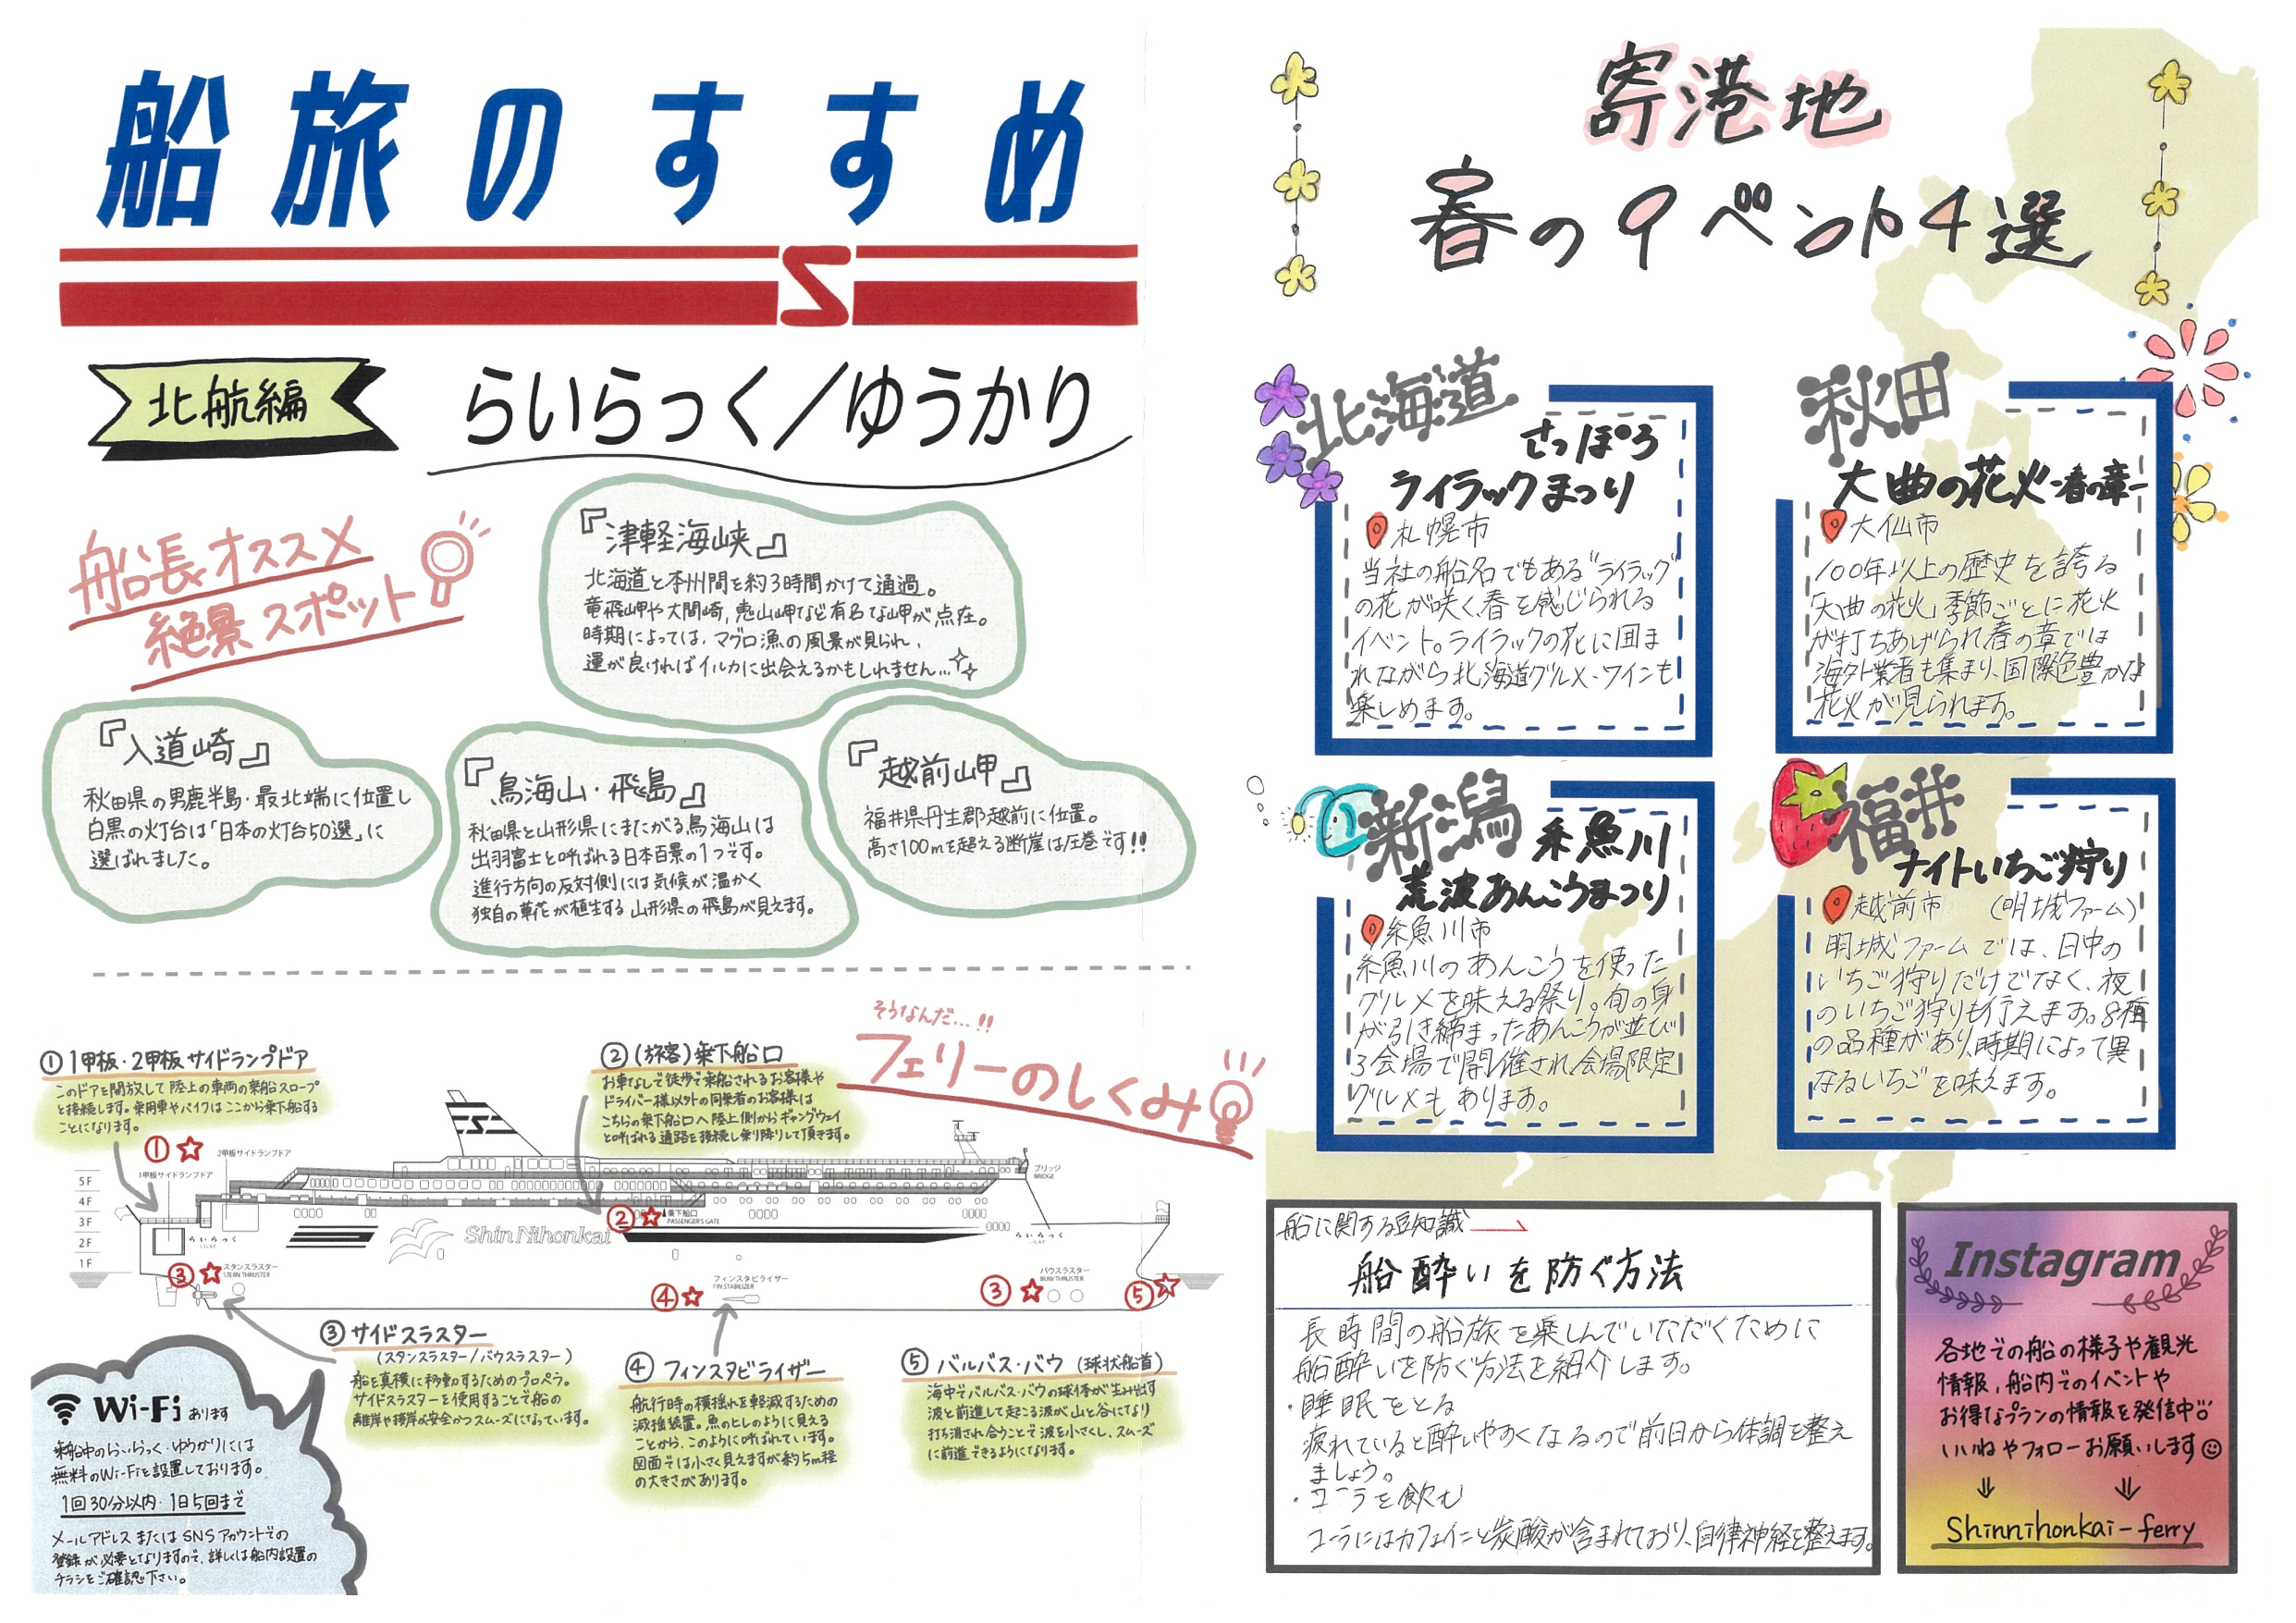 船旅のすすめ
北航編
らいらっく／ゆうかり
船長オススメ
絶景スポット
『津軽海峡』
北海道と本州間を約3時間かけて通過。
竜飛岬や大間崎，恵山岬など有名な岬が点在。
時期によっては，マグロ漁の風景が見られ，
運が良ければイルカに出会えるかもしれません…
『入道崎』
秋田県の男鹿半島・最北端に位置し
白黒の灯台は「日本の灯台50選」に
選ばれました。
『鳥海山・飛島』
秋田県と山形県にまたがる鳥海山は
出羽富士と呼ばれる日本百景の1つです。
進行方向の反対側には気候が温かく
独自の草花が植生する山形県の飛島が見えます。
『越前岬』
福井県丹生郡越前に位置。
高さ100mを超える断崖は圧巻です!!
そうなんだ…!!
フェリーのしくみ
① 1甲板・2甲板 サイドランプドア
このドアを開放して陸上の車両の乗船スロープ
と接続します。乗用車やバイクはここから乗下船する
ことになります。
② (旅客)乗下船口
お車なしで徒歩で乗船されるお客様や
ドライバー様以外の同乗者のお客様は
こちらの乗下船口へ陸上側からギャングウェイ
と呼ばれる通路を接続し乗り降りして頂きます。
①
1甲板サイドランプドア
2甲板サイドランプドア
ブリッジ
BRIDGE
5F
4F
3F
2F
1F
らいらっく
LILAC
Shin Nihonkai
②
乗下船口
PASSENGER'S GATE
らいらっく
LILAC
③
スタンスラスター
STERN THRUSTER
④
フィンスタビライザー
FIN STABILIZER
③
バウスラスター
BOW THRUSTER
⑤
③ サイドスラスター
(スタンスラスター/バウスラスター)
船を真横に移動するためのプロペラ。
サイドスラスターを使用することで船の
離岸や接岸が安全かつスムーズになっています。
④ フィンスタビライザー
航行時の横揺れを軽減するための
減揺装置。魚のヒレのように見える
ことから、このように呼ばれています。
図面では小さく見えますが約5m程
の大きさがあります。
⑤ バルバス・バウ (球状船首)
海中でバルバス・バウの球体が生み出す
波と前進して起こる波が山と谷になり
打ち消され合うことで波を小さくし、スムーズ
に前進できるようになります。
Wi-Fi あります
乗船中のらいらっく・ゆうかりには
無料のWi-Fiを設置しております。
1回30分以内・1日5回まで
メールアドレスまたはSNSアカウントでの
登録が必要となりますので、詳しくは船内設置の
チラシをご確認下さい。
寄港地
春のイベント4選
北海道
さっぽろ
ライラックまつり
札幌市
当社の船名でもある"ライラック"
の花が咲く、春を感じられる
イベント。ライラックの花に囲ま
れながら北海道グルメ・ワインも
楽しめます。
秋田
大曲の花火-春の章-
大仙市
100年以上の歴史を誇る
「大曲の花火」季節ごとに花火
が打ちあげられ春の章では
海外業者も集まり、国際色豊かな
花火が見られます。
新潟
糸魚川
荒波あんこうまつり
糸魚川市
糸魚川のあんこうを使った
グルメを味える祭り。旬の身
が引き締まったあんこうが並び
3会場で開催され会場限定
グルメもあります。
福井
ナイトいちご狩り
越前市 (明城ファーム)
明城ファームでは、日中の
いちご狩りだけでなく、夜
のいちご狩りも行えます。8種
の品種があり、時期によって異
なるいちごを味えます。
船に関する豆知識
船酔いを防ぐ方法
長時間の船旅を楽しんでいただくために
船酔いを防ぐ方法を紹介します。
・睡眠をとる
疲れていると酔いやすくなるので前日から体調を整え
ましょう。
・コーラを飲む
コーラにはカフェインと炭酸が含まれており、自律神経を整えます。
Instagram
各地での船の様子や観光
情報，船内でのイベントや
お得なプランの情報を発信中!!
いいねやフォローお願いします
Shinnihonkai-ferry